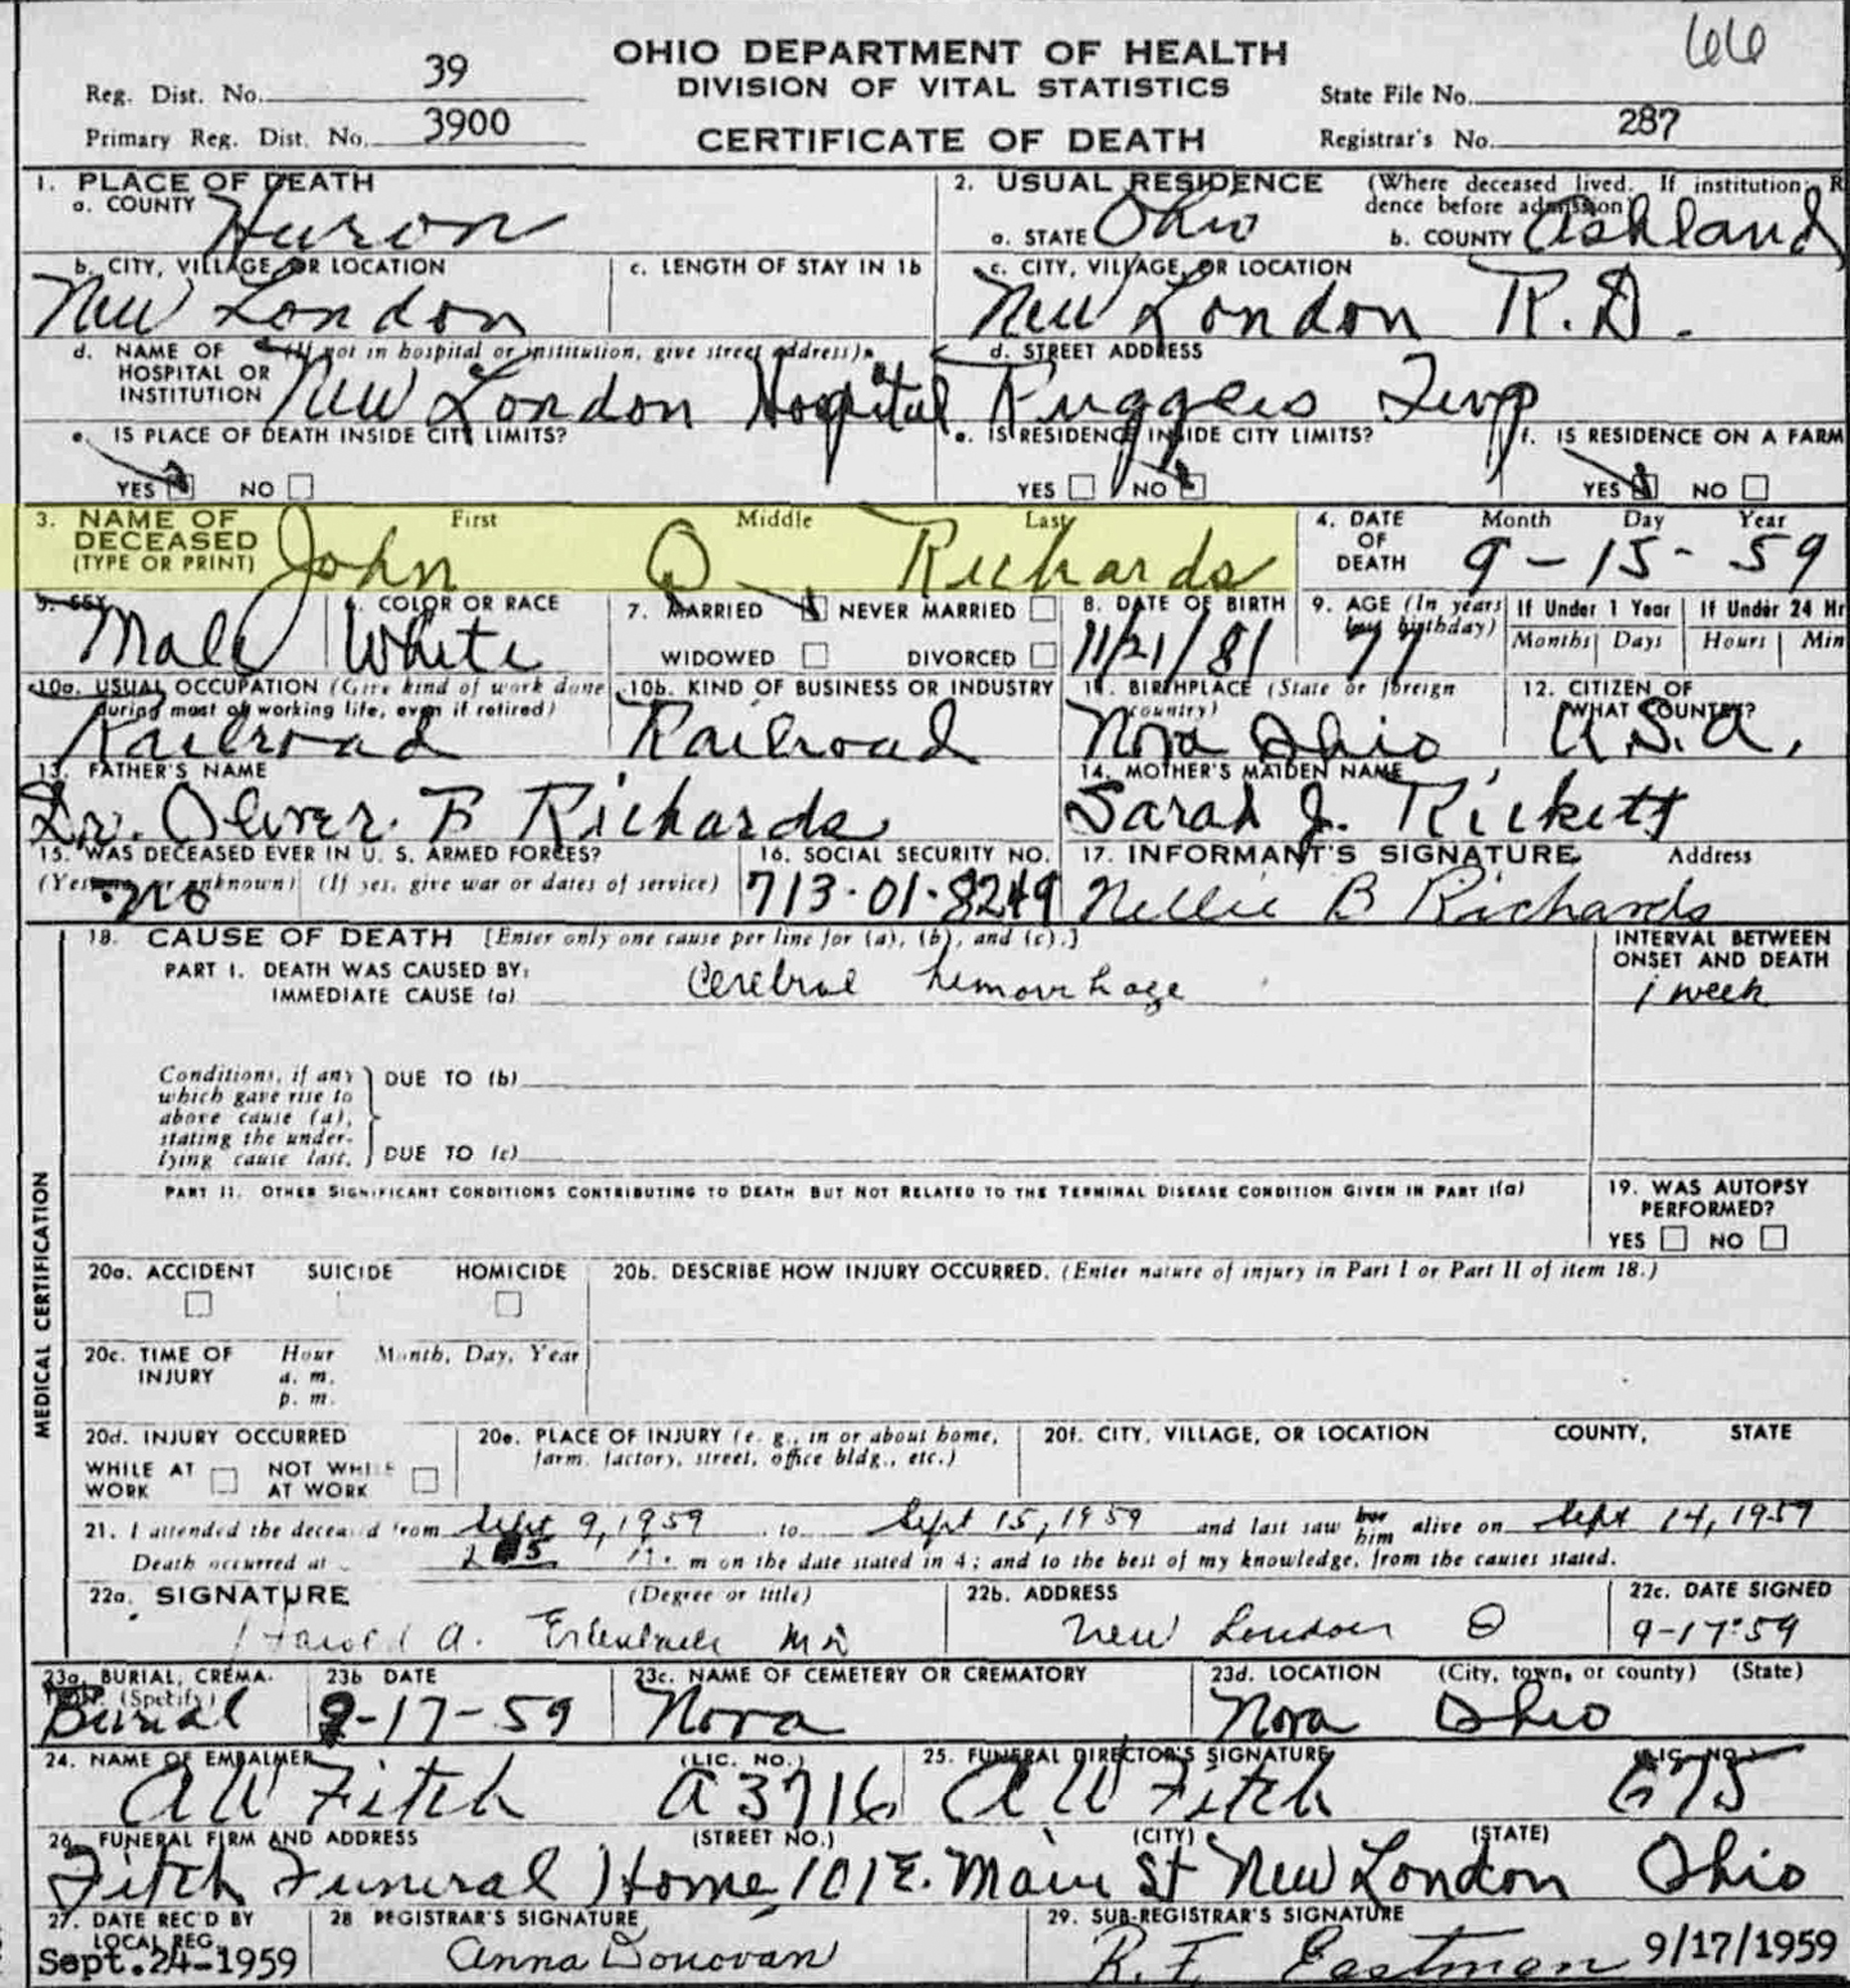 66
OHIO DEPARTMENT OF HEALTH
DIVISION OF VITAL STATISTICS
CERTIFICATE OF DEATH
Reg. Dist. No. 39
Primary Reg. Dist. No. 3900
State File No.
Registrar's No. 287
1. PLACE OF DEATH
a. COUNTY Huron
2. USUAL RESIDENCE (Where deceased lived. If institution: R
dence before admission)
a. STATE Ohio b. COUNTY Ashland
b. CITY, VILLAGE, OR LOCATION
New London
c. LENGTH OF STAY IN 1b
c. CITY, VILLAGE, OR LOCATION
New London R.D.
d. NAME OF (If not in hospital or institution, give street address)
HOSPITAL OR
INSTITUTION New London Hospital
d. STREET ADDRESS
Ruggles Twp
e. IS PLACE OF DEATH INSIDE CITY LIMITS?
YES NO
e. IS RESIDENCE INSIDE CITY LIMITS?
YES NO
f. IS RESIDENCE ON A FARM
YES NO
3. NAME OF First Middle Last
DECEASED
(TYPE OR PRINT) John O Richards
4. DATE Month Day Year
OF
DEATH 9-15-59
5. SEX
Male
6. COLOR OR RACE
White
7. MARRIED NEVER MARRIED
WIDOWED DIVORCED
8. DATE OF BIRTH
11/21/81
9. AGE (In years
last birthday)
77
If Under 1 Year If Under 24 Hr
Months Days Hours Min
10a. USUAL OCCUPATION (Give kind of work done
during most of working life, even if retired)
Railroad
10b. KIND OF BUSINESS OR INDUSTRY
Railroad
11. BIRTHPLACE (State or foreign
country)
Nova Ohio
12. CITIZEN OF
WHAT COUNTRY?
U.S.A.
13. FATHER'S NAME
Dr. Oliver F Richards
14. MOTHER'S MAIDEN NAME
Sarah J. Rickett
15. WAS DECEASED EVER IN U. S. ARMED FORCES?
(Yes, no, or unknown) (If yes, give war or dates of service)
no
16. SOCIAL SECURITY NO.
713-01-8249
17. INFORMANT'S SIGNATURE Address
Nellie B Richards
MEDICAL CERTIFICATION
18. CAUSE OF DEATH [Enter only one cause per line for (a), (b), and (c).]
PART I. DEATH WAS CAUSED BY:
IMMEDIATE CAUSE (a) Cerebral hemorrhage
INTERVAL BETWEEN
ONSET AND DEATH
1 week
Conditions, if any
which gave rise to
above cause (a),
stating the under-
lying cause last.
DUE TO (b)
DUE TO (c)
PART II. OTHER SIGNIFICANT CONDITIONS CONTRIBUTING TO DEATH BUT NOT RELATED TO THE TERMINAL DISEASE CONDITION GIVEN IN PART I(a)
19. WAS AUTOPSY
PERFORMED?
YES NO
20a. ACCIDENT SUICIDE HOMICIDE
20b. DESCRIBE HOW INJURY OCCURRED. (Enter nature of injury in Part I or Part II of item 18.)
20c. TIME OF Hour Month, Day, Year
INJURY a. m.
p. m.
20d. INJURY OCCURRED
WHILE AT NOT WHILE
WORK AT WORK
20e. PLACE OF INJURY (e. g., in or about home,
farm, factory, street, office bldg., etc.)
20f. CITY, VILLAGE, OR LOCATION COUNTY, STATE
21. I attended the deceased from Sept 9, 1959 to Sept 15, 1959 and last saw her him alive on Sept 14, 1959
Death occurred at m on the date stated in 4; and to the best of my knowledge, from the causes stated.
22a. SIGNATURE (Degree or title)
Harold A. MD
22b. ADDRESS
New London O
22c. DATE SIGNED
9-17-59
23a. BURIAL, CREMA-
TION (Specify)
Burial
23b DATE
9-17-59
23c. NAME OF CEMETERY OR CREMATORY
Nova
23d. LOCATION (City, town, or county) (State)
Nova Ohio
24. NAME OF EMBALMER (LIC. NO.)
A W Fitch A3716
25. FUNERAL DIRECTOR'S SIGNATURE (LIC. NO.)
A W Fitch 675
26. FUNERAL FIRM AND ADDRESS (STREET NO.) (CITY) (STATE)
Fitch Funeral Home 101 E. Main St New London Ohio
27. DATE REC'D BY
LOCAL REG.
Sept. 24-1959
28 REGISTRAR'S SIGNATURE
Anna Donovan
29. SUB-REGISTRAR'S SIGNATURE
R. F. Eastman 9/17/1959